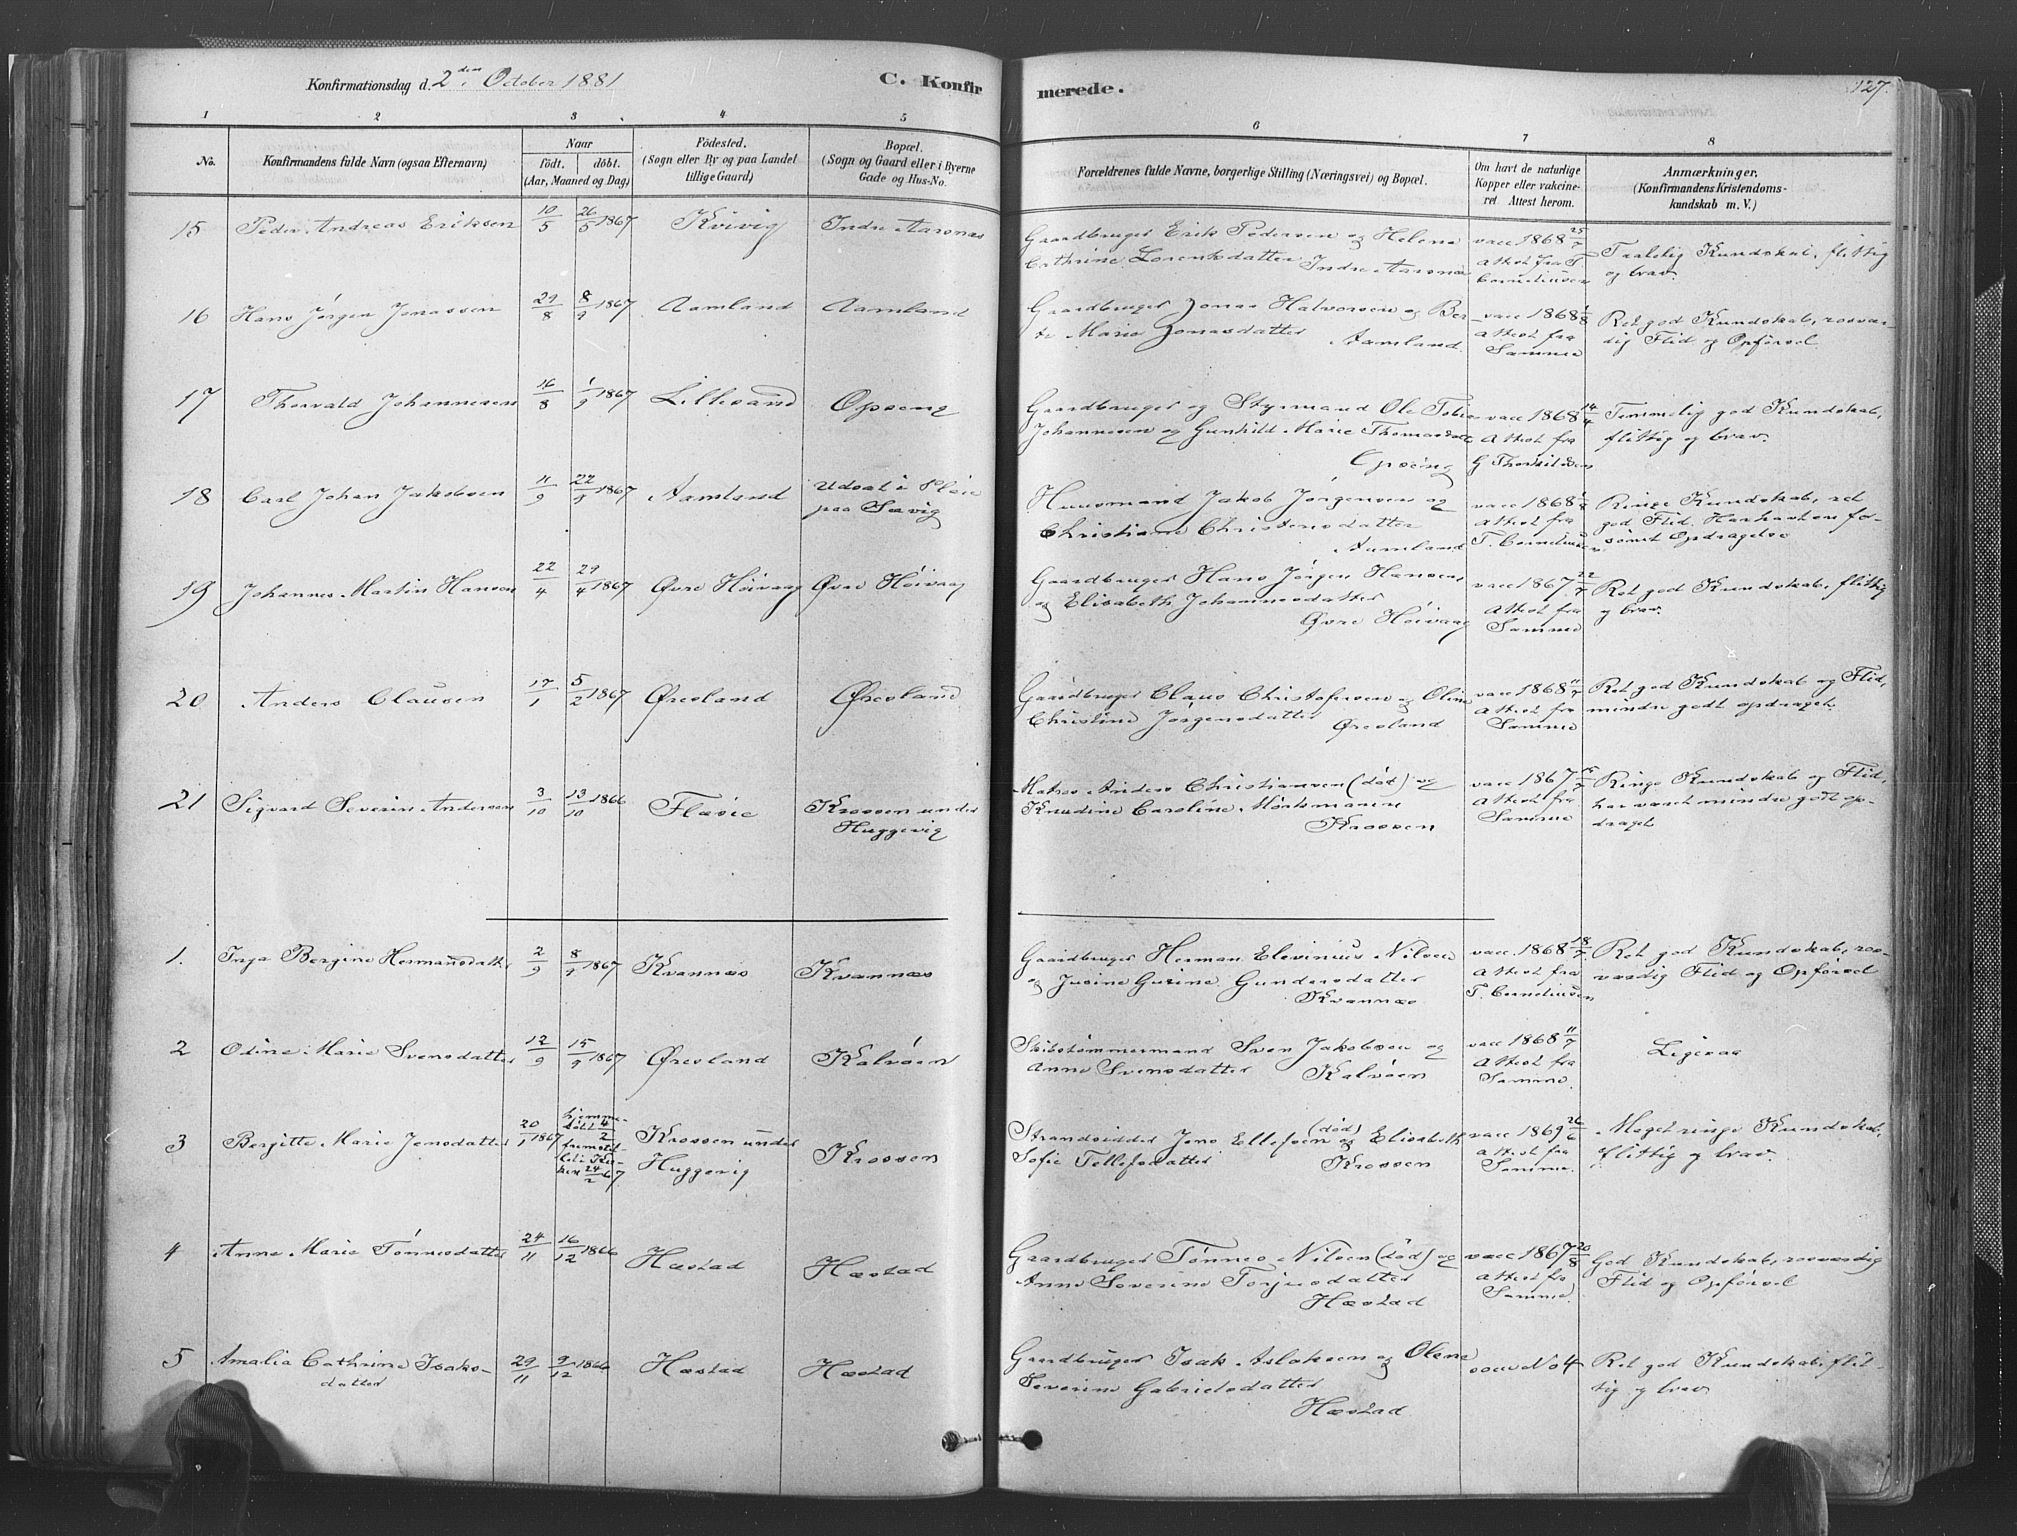 Konfirmationsdag d. 2den October 1881
C. Konfir
merede.
127.
1 2 3 4 5 6 7 8
No.
Konfirmandens fulde Navn (ogsaa Efternavn)
Naar
født. døbt.
(Aar, Maaned og Dag)
Fødested.
(Sogn eller By og paa Landet
tillige Gaard)
Bopæl.
(Sogn og Gaard eller i Byerne
Gade og Hus-No.
Forældrenes fulde Navne, borgerlige Stilling (Næringsvei) og Bopæl.
Om havt de naturlige
Kopper eller vakcine-
ret Attest herom.
Anmærkninger.
(Konfirmandens Kristendoms-
kundskab m. V.)
15 Peder Andreas Eriksen 10/5 26/5 1867 Kvivig Indre Aarsnæs
Gaardbruger Erik Pedersen og Helene
Cathrine Lorentsdatter Indre Aarsnæs
vacc 1868 25/7
Attest fra T.
Corneliusen
Taalelig Kundskab, flittig
og brav.
16 Hans Jørgen Jonassen 29/8 8/9 1867 Aamland Aamland
Gaardbruger Jonas Halvorsen og Ber-
te Marie Jonasdatter
Aamland.
vacc 1868
Attest fra
Samme
Ret god Kundskab, rosvær-
dig Flid og Opførsel.
17 Thorvald Johannesen 16/8 1/9 1867 Lillesand Opseng
Gaardbruger og Styrmand Ole Tobias
Johannesen og Gunhild Marie Thomasdatt
Opseng
vacc 1868 14/4
Attest fra
G Thorkildsen
Temmelig god Kundskab,
flittig og brav.
18 Carl Johan Jakobsen 11/9 22/9 1867 Aamland Udsat i Pleie
paa Sævig
Huusmand Jakob Jørgensen og
Christiane Christensdatter
Aamland
vacc 1868
Attest fra
T. Corneliusen
Ringe Kundskab, ret
god Flid. Har havt en for-
sømt Opdragelse
19 Johannes Martin Hansen 22/4 29/4 1867 Øvre Høivaag Øvre Høivaag
Gaardbruger Hans Jørgen Hansen
og Elisabeth Johannesdatter
Øvre Høivaag
vacc 1867 22/7
Attest fra
Samme
Ret god Kundskab, flittig
og brav.
20 Anders Clausen 17/1 5/2 1867 Øresland Øresland
Gaardbruger Claus Christofersen og Oline
Christine Jørgensdatter
Øresland
vacc 1868 11/7
Attest fra
Samme
Ret god Kundskab og Flid,
mindre godt opdraget.
21 Sigvard Severin Andersen 3/10 13/10 1866 Flæsie Krossen under
Huggevig
Matros Anders Christiansen (død) og
Knudine Caroline Mortsmann
Krossen
vacc 1867 15/7
Attest fra
Samme
Ringe Kundskab og Flid,
har været mindre godt op-
draget
1. Inga Bergine Hermansdatter 2/9 8/9 1867 Kvannæs Kvannæs
Gaardbruger Herman Elevinius Nilsen
og Jusine Gurine Gundersdatter
Kvannæs
vacc 1868 18/7
Attest fra
T. Corneliusen
Ret god Kundskab, ros-
værdig Flid og Opførsel
2 Odine Marie Svensdatter 12/9 15/9 1867 Øresland Kalvøen
Skibstømmermand Sven Jakobsen og
Anne Svensdatter Kalvøen
vacc 1868 11/7
Attest fra
Samme.
Ligesaa
3 Bergitte Marie Jensdatter 20/1 1867 hjemme-
døbt 4/2
fremstil-
let i Kir-
ken 24/2 67
Krossen under
Huggevig
Krossen
Strandsidder Jens Ellefsen (død) og Elisabeth
Sofie Tellefsdatter Krossen
vacc 1869 26/6
Attest fra
Samme.
Meget ringe Kundskab,
flittig og brav.
4 Anne Marie Tønnesdatter 24/11 16/12 1866 Hæstad Hæstad
Gaardbruger Tønnes Nilsen (død) og
Anne Severine Torjusdatter
Hæstad
vacc 1867 20/8
Attest fra
Samme.
God Kundskab, rosværdig
Flid og Opførsel
5 Amalia Cathrine Isaks-
datter
29/11 9/12 1866 Hæstad Hæstad
Gaardbruger Isak Aslaksen og Olene
Severine Gabrielsdatter
Hæstad
som No 4
Ret god Kundskab, flit-
tig og brav